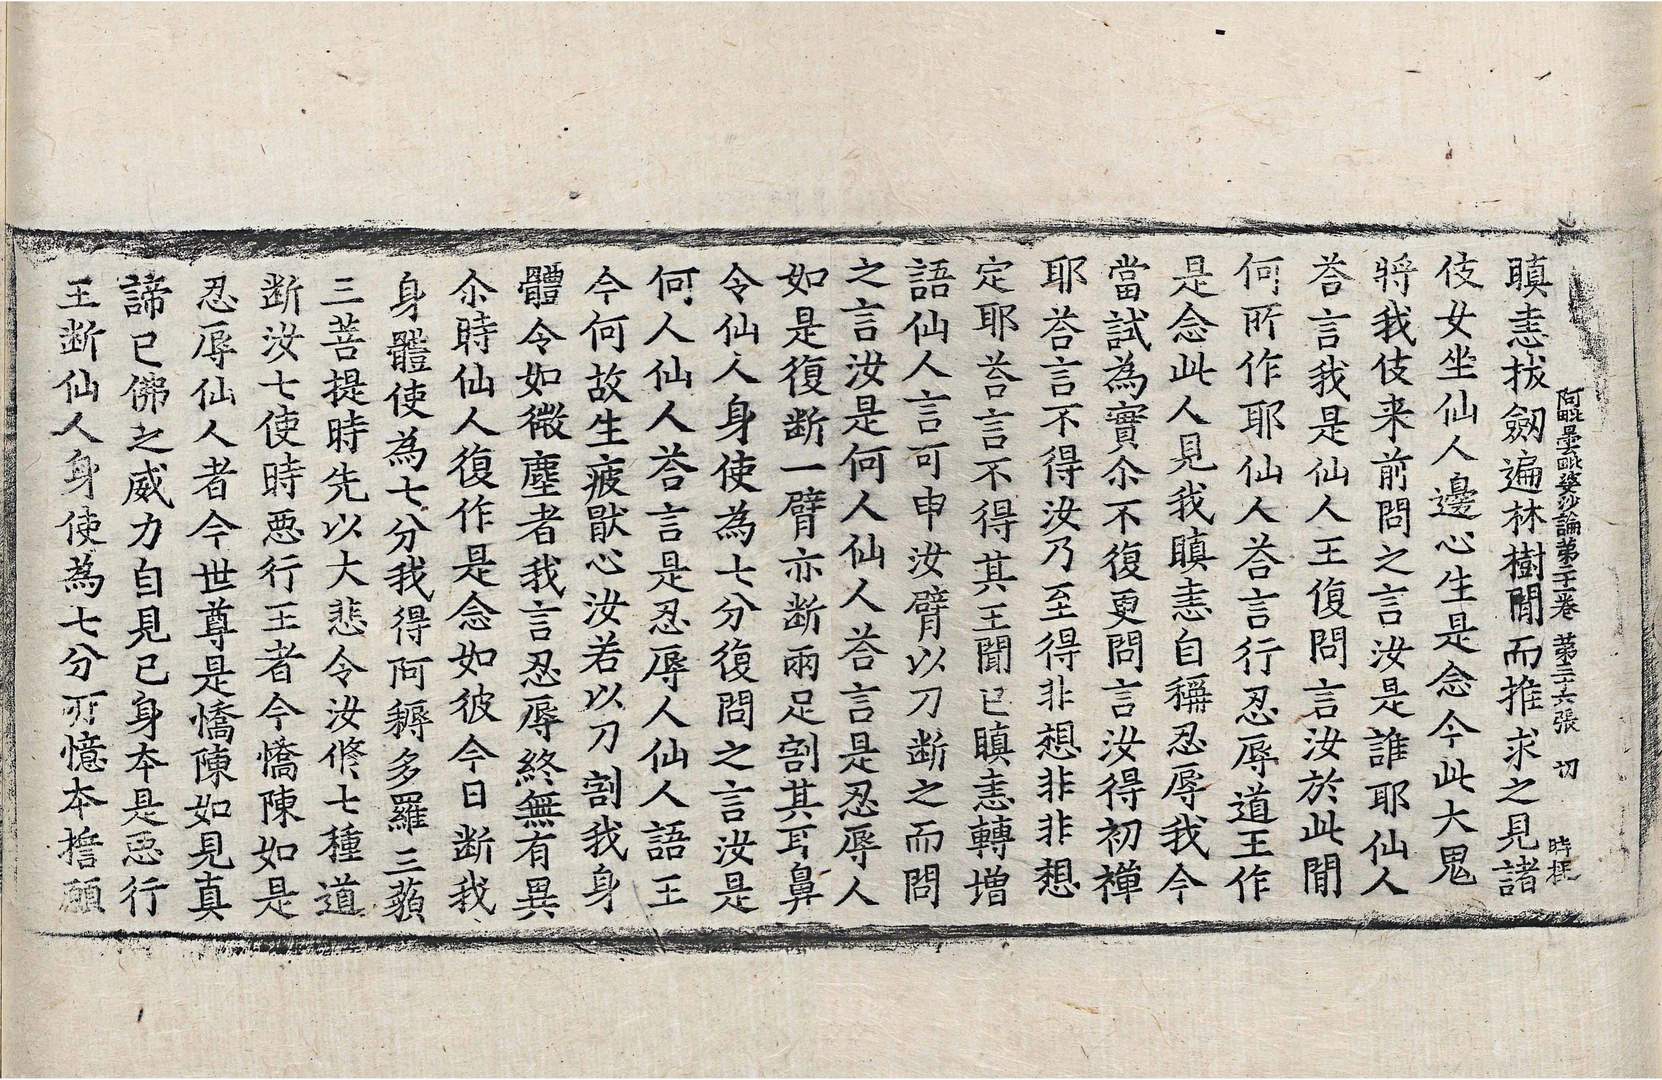 阿毗曇毗婆沙論第二十五卷 第三十六張 切
瞋恚拔劒遍林樹間而推求之見諸
伎女坐仙人邊心生是念今此大鬼
將我伎来前問之言汝是誰耶仙人
荅言我是仙人王復問言汝於此間
何所作耶仙人荅言行忍辱道王作
是念此人見我瞋恚自稱忍辱我今
當試為實尒不復更問言汝得初禪
耶荅言不得汝乃至得非想非非想
定耶荅言不得其王聞已瞋恚轉增
語仙人言可申汝臂以刀断之而問
之言汝是何人仙人荅言是忍辱人
如是復断一臂亦断兩足割其耳鼻
令仙人身使為七分復問之言汝是
何人仙人荅言是忍辱人仙人語王
今何故生疲猒心汝若以刀割我身
體令如微塵者我言忍辱終無有異
尒時仙人復作是念如彼今日断我
身體使為七分我得阿耨多羅三藐
三菩提時先以大悲令汝修七種道
断汝七使時惡行王者今憍陳如是
忍辱仙人者今世尊是憍陳如見真
諦已佛之威力自見已身本是惡行
王断仙人身使為七分所憶本擔願